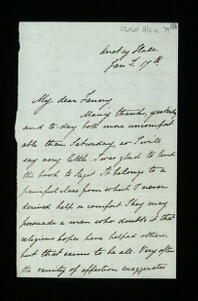 Jan 17th
My dear Fanny
Many thanks, yesterday
and to-day both more uncomfort
able than Saturday, so I will
say very little. I was glad to lend
the book to
. It belongs to a
painful class from which I never
derived help or comfort. They may
persuade a man who doubts it that
religious hopes have helped others,
but that seems to be all. Very often
the vanity of affection exaggerates